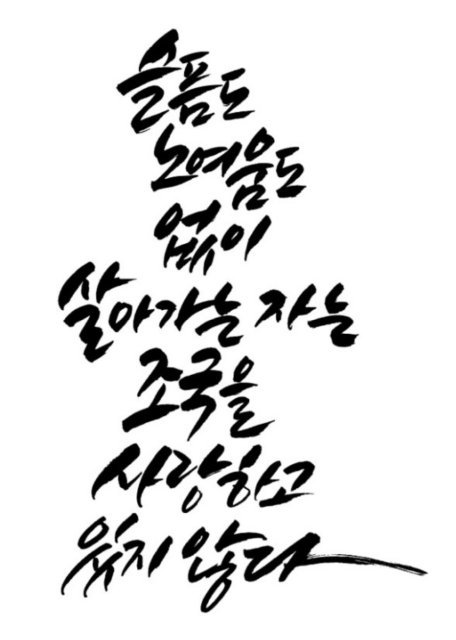 슬픔도
노여움도
없이
살아가는 자는
조국을
사랑하고
있지 않다